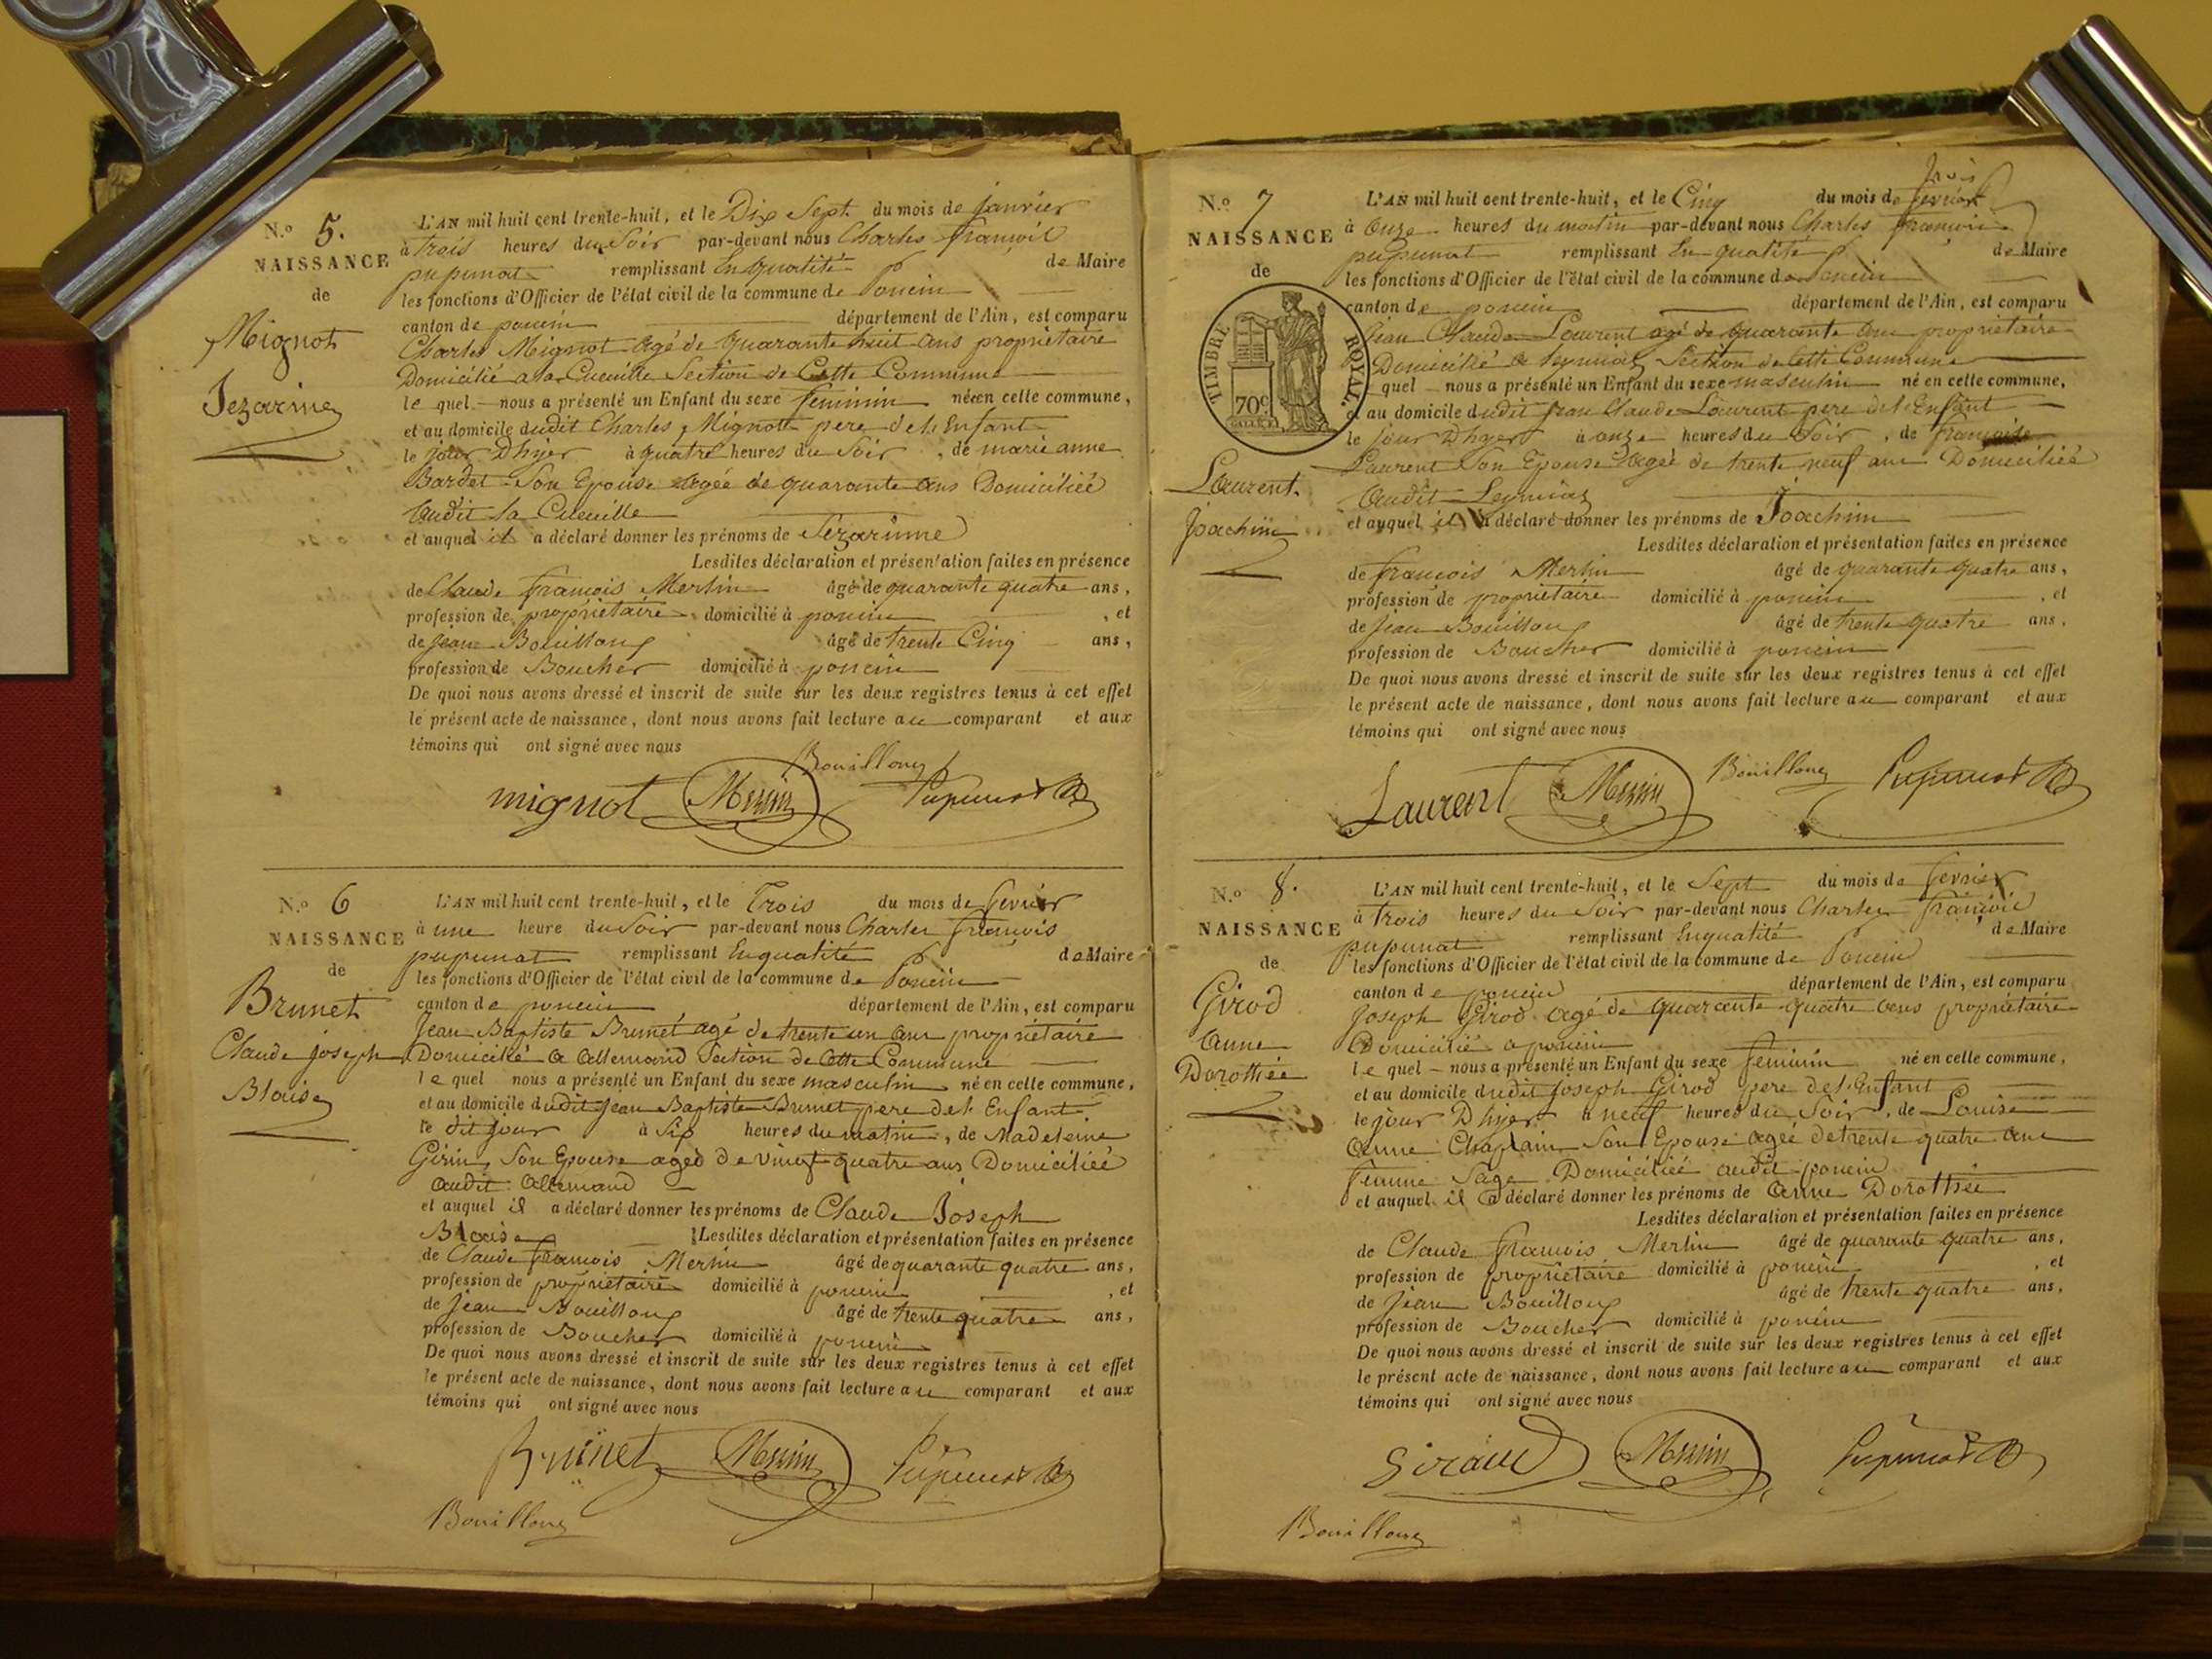 N.º 5.
NAISSANCE
de
Mignot
Sezarine
L'AN mil huit cent trente-huit, et le Dix Sept du mois de janvier
à trois heures du Soir par-devant nous Charles françois
pupunat remplissant En qualité de Maire
les fonctions d'Officier de l'état civil de la commune de Poncin
canton de poncin département de l'Ain, est comparu
Charles Mignot agé de quarante huit ans propriétaire
Domicilié a la Cueuille Section de Cette Commune
le quel nous a présenté un Enfant du sexe feminin née en cette commune,
et au domicile dudit Charles Mignot pere de l'Enfant
le jour D'hyer à quatre heures du Soir, de marie anne
Bardet Son Epouse agée de quarante ans Domiciliée
audit la Cueuille
et auquel il a déclaré donner les prénoms de Sezarinne
Lesdites déclaration et présentation faites en présence
de Claude françois Merlin âgé de quarante quatre ans,
profession de propriétaire domicilié à poncin, et
de jean Bouilloux âgé de trente Cinq ans,
profession de Boucher domicilié à poncin
De quoi nous avons dressé et inscrit de suite sur les deux registres tenus à cet effet
le présent acte de naissance, dont nous avons fait lecture au comparant et aux
témoins qui ont signé avec nous
Bouilloux
mignot Merlin Pupunat
N.º 6
NAISSANCE
de
Brunet
Claude joseph
Blaise
L'AN mil huit cent trente-huit, et le Trois du mois de fevrier
à une heure du Soir par-devant nous Charles françois
pupunat remplissant En qualité de Maire
les fonctions d'Officier de l'état civil de la commune de Poncin
canton de poncin département de l'Ain, est comparu
Jean Baptiste Brunet agé de trente un ans propriétaire
Domicilié a allemand Section de Cette Commune
le quel nous a présenté un Enfant du sexe masculin né en cette commune,
et au domicile dudit jean Baptiste Brunet pere de l'Enfant
le dit jour à Six heures du matin, de Madeleine
Girin, Son Epouse ageé de vingt quatre ans Domiciliée
audit allemand
et auquel il a déclaré donner les prénoms de Claude Joseph
Blaise Lesdites déclaration et présentation faites en présence
de Claude françois Merlin âgé de quarante quatre ans,
profession de propriétaire domicilié à poncin, et
de jean Bouilloux âgé de trente quatre ans,
profession de Boucher domicilié à poncin
De quoi nous avons dressé et inscrit de suite sur les deux registres tenus à cet effet
le présent acte de naissance, dont nous avons fait lecture au comparant et aux
témoins qui ont signé avec nous
Brunet Merlin Pupunat
Bouilloux
N.º 7
NAISSANCE
de
TIMBRE ROYAL.
70c
Laurent
Joachim
trois
L'AN mil huit cent trente-huit, et le Cinq du mois de fevrier
à Onze heures du matin par-devant nous Charles françois
pupunat remplissant En qualité de Maire
les fonctions d'Officier de l'état civil de la commune de Poncin
canton de poncin département de l'Ain, est comparu
Jean Claude Laurent agé de quarante ans propriétaire
Domicilié a Leymiat Section de Cette Commune
quel nous a présenté un Enfant du sexe masculin né en cette commune,
et au domicile dudit jean Claude Laurent pere de l'Enfant
le jour D'hyer à onze heures du Soir, de françoise
Laurent Son Epouse agée de trente neuf ans Domiciliée
audit Leymiat
et auquel il a déclaré donner les prénoms de Joachim
Lesdites déclaration et présentation faites en présence
de françois Merlin âgé de quarante quatre ans,
profession de propriétaire domicilié à poncin, et
de jean Bouilloux âgé de trente quatre ans,
profession de Boucher domicilié à poncin
De quoi nous avons dressé et inscrit de suite sur les deux registres tenus à cet effet
le présent acte de naissance, dont nous avons fait lecture au comparant et aux
témoins qui ont signé avec nous
Laurent Merlin Bouilloux Pupunat
N.º 8.
NAISSANCE
de
Girod
Anne
Dorothée
L'AN mil huit cent trente-huit, et le Sept du mois de fevrier
à trois heures du Soir par-devant nous Charles françois
pupunat remplissant En qualité de Maire
les fonctions d'Officier de l'état civil de la commune de Poncin
canton de poncin département de l'Ain, est comparu
Joseph Girod agé de quarante quatre ans propriétaire
Domicilié a poncin
le quel nous a présenté un Enfant du sexe feminin né en cette commune,
et au domicile dudit joseph Girod pere de l'Enfant
le jour D'hyer à neuf heures du Soir, de Louise
Anne Chaplain Son Epouse agée de trente quatre ans
femme Sage Domiciliée audit poncin
et auquel il a déclaré donner les prénoms de Anne Dorothée
Lesdites déclaration et présentation faites en présence
de Claude françois Merlin âgé de quarante quatre ans,
profession de propriétaire domicilié à poncin, et
de jean Bouilloux âgé de trente quatre ans,
profession de Boucher domicilié à poncin
De quoi nous avons dressé et inscrit de suite sur les deux registres tenus à cet effet
le présent acte de naissance, dont nous avons fait lecture au comparant et aux
témoins qui ont signé avec nous
Giraud Merlin Pupunat
Bouilloux